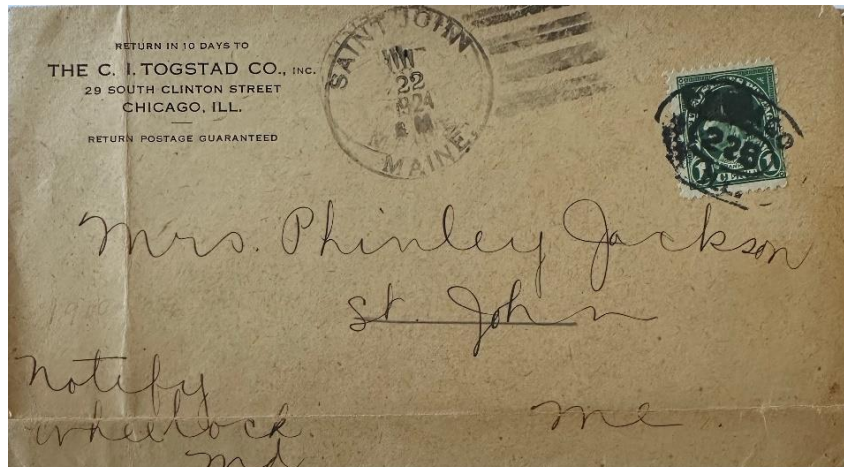 RETURN IN 10 DAYS TO
THE C. I. TOGSTAD CO., INC.
29 SOUTH CLINTON STREET
CHICAGO, ILL.
RETURN POSTAGE GUARANTEED
SAINT JOHN
22
1924
MAINE
228
1 1
Mrs. Phinley Jackson
St. John
Me.
Notify
Wheelock
Md